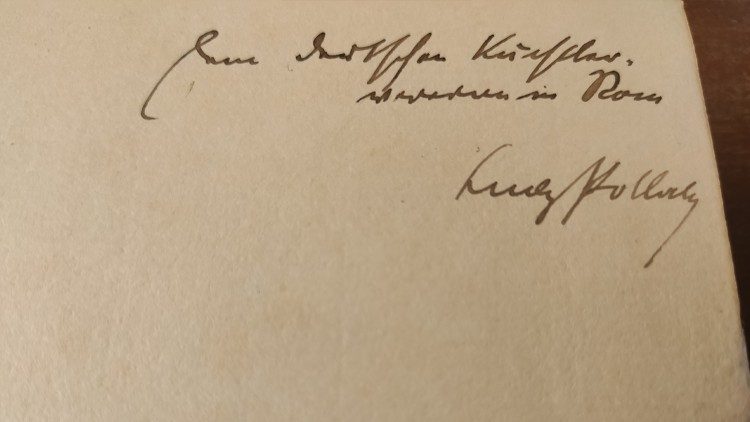 Dem deutschen Künstler-
verein in Rom
Ludwig Pollak